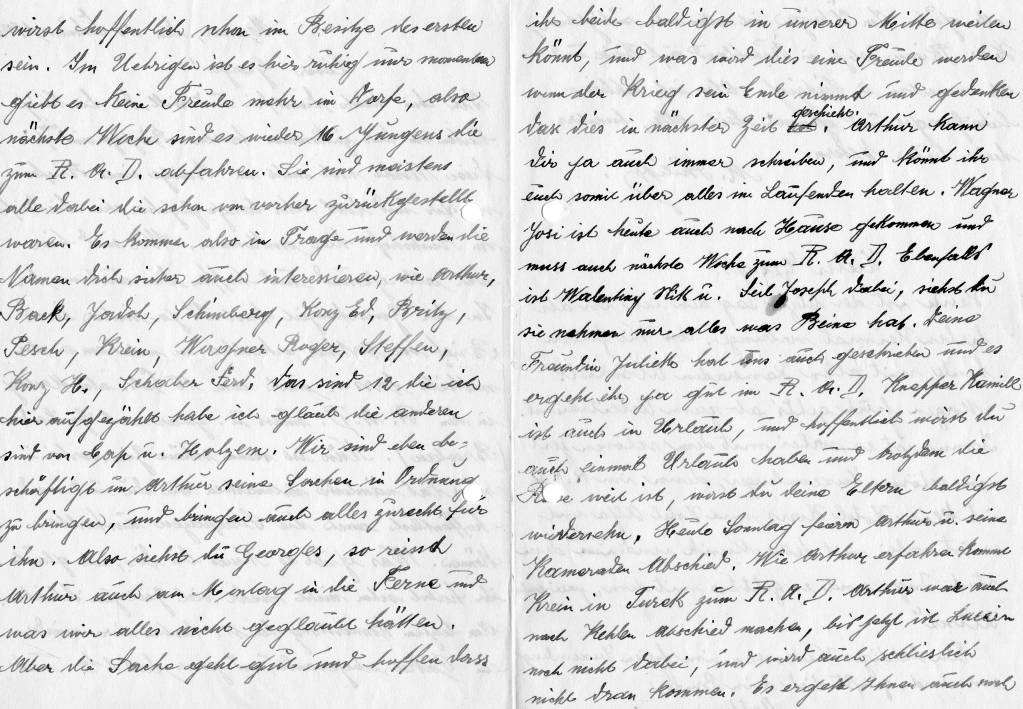 wirst hoffentlich schon im Besitze des ersten
sein. Im Uebrigen ist es hier ruhig und momentan
giebt es keine Freude mehr im Dorfe, also
nächste Woche sind es wieder 16 Jungens die
zum R. A. D. abfahren. Sie sind meistens
alle dabei die schon von vorher zurückgestellt
waren. Es kommen also in Frage und werden die
Namen dich sicher auch interessieren, wie Arthur,
Back, Jadoh, Schimberg, Konz Ed, Britz,
Pesch, Krein, Wagner Roger, Steffen,
Konz H., Schaber Ferd. Das sind 12 die ich
hier aufgezählt habe ich glaub die anderen
sind von Cap u. Holzem. Wir sind eben be-
schäftigt um Arthur seine Sachen in Ordnung
zu bringen, und bringen auch alles zurecht für
ihn. Also siehst du Georges, so reisst
Arthur auch am Montag in die Ferne und
was wir alles nicht geglaubt hätten.
Aber die Sache geht gut und hoffen dass
ihr beide baldigst in unserer Mitte weilen
könnt, und was wird dies eine Freude werden
wenn der Krieg sein Ende nimmt und gedenken
dass dies in nächster Zeit geschieht. Arthur kann
dir ja auch immer schreiben, und könnt ihr
euch somit über alles im Laufenden halten. Wagner
Josi ist heute auch nach Hause gekommen und
muss auch nächste Woche zum R. A. D. Ebenfalls
ist Walentiny Nik u. Seil Joseph dabei, siehst du
sie nehmen nur alles was Beine hat. Deine
Freundin Juliette hat uns auch geschrieben und es
ergeht ihr ja gut im R. A. D. Knepper Kamill
ist auch in Urlaub, und hoffentlich wirst du
auch einmal Urlaub haben und trotzdem die
Reise weit ist, wirst du deine Eltern baldigst
wiedersehn. Heute Sonntag feiern Arthur u. seine
Kameraden Abschied. Wie Arthur erfahren kommt
Krein in Turek zum R. A. D. Arthur war auch
nach Kehlen Abschied machen, bis jetzt ist Lucien
noch nicht dabei, und wird auch schlieslich
nicht dran kommen. Es ergeht Ihnen auch noch